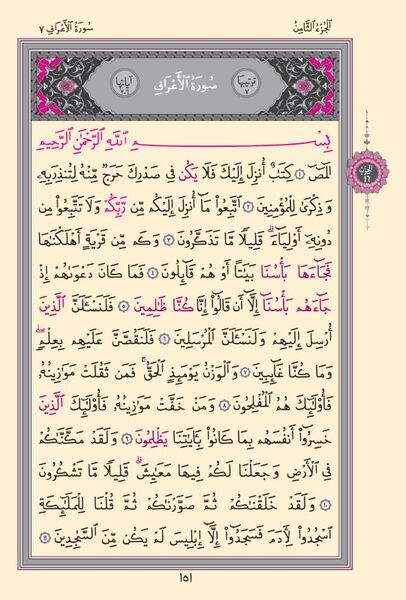 سورة الأعراف ٧ الجزء الثامن
ترتيبها ٧ سُورَةُ الْأَعْرَافِ آياتها ٢٠٦
بِسْمِ اللَّهِ الرَّحْمَٰنِ الرَّحِيمِ
الحزب ١٦
الٓمٓصٓ ١ كِتَٰبٌ أُنزِلَ إِلَيْكَ فَلَا يَكُن فِي صَدْرِكَ حَرَجٌ مِّنْهُ لِتُنذِرَ بِهِۦ
وَذِكْرَىٰ لِلْمُؤْمِنِينَ ٢ ٱتَّبِعُوا۟ مَآ أُنزِلَ إِلَيْكُم مِّن رَّبِّكُمْ وَلَا تَتَّبِعُوا۟ مِن
دُونِهِۦٓ أَوْلِيَآءَ ۗ قَلِيلًا مَّا تَذَكَّرُونَ ٣ وَكَم مِّن قَرْيَةٍ أَهْلَكْنَٰهَا
فَجَآءَهَا بَأْسُنَا بَيَٰتًا أَوْ هُمْ قَآئِلُونَ ٤ فَمَا كَانَ دَعْوَىٰهُمْ إِذْ
جَآءَهُم بَأْسُنَآ إِلَّآ أَن قَالُوٓا۟ إِنَّا كُنَّا ظَٰلِمِينَ ٥ فَلَنَسْـَٔلَنَّ ٱلَّذِينَ
أُرْسِلَ إِلَيْهِمْ وَلَنَسْـَٔلَنَّ ٱلْمُرْسَلِينَ ٦ فَلَنَقُصَّنَّ عَلَيْهِم بِعِلْمٍ ۖ
وَمَا كُنَّا غَآئِبِينَ ٧ وَٱلْوَزْنُ يَوْمَئِذٍ ٱلْحَقُّ ۚ فَمَن ثَقُلَتْ مَوَٰزِينُهُۥ
فَأُو۟لَٰٓئِكَ هُمُ ٱلْمُفْلِحُونَ ٨ وَمَنْ خَفَّتْ مَوَٰزِينُهُۥ فَأُو۟لَٰٓئِكَ ٱلَّذِينَ
خَسِرُوٓا۟ أَنفُسَهُم بِمَا كَانُوا۟ بِـَٔايَٰتِنَا يَظْلِمُونَ ٩ وَلَقَدْ مَكَّنَّٰكُمْ
فِي ٱلْأَرْضِ وَجَعَلْنَا لَكُمْ فِيهَا مَعَٰيِشَ ۗ قَلِيلًا مَّا تَشْكُرُونَ
١٠ وَلَقَدْ خَلَقْنَٰكُمْ ثُمَّ صَوَّرْنَٰكُمْ ثُمَّ قُلْنَا لِلْمَلَٰٓئِكَةِ
ٱسْجُدُوا۟ لِـَٔادَمَ فَسَجَدُوٓا۟ إِلَّآ إِبْلِيسَ لَمْ يَكُن مِّنَ ٱلسَّٰجِدِينَ ١١
١٥١